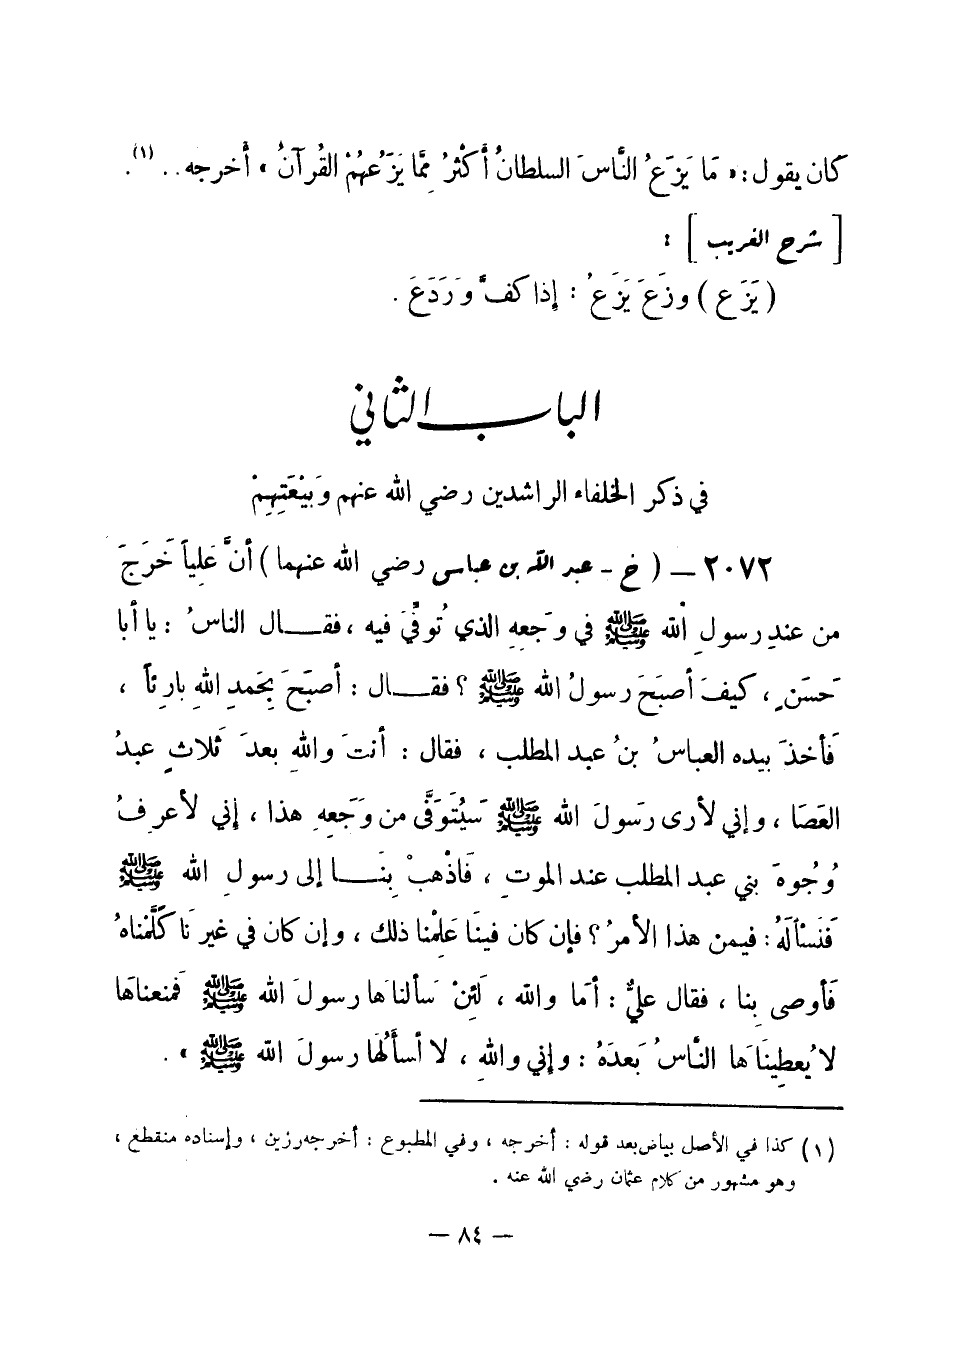 كان يقول : « مَا يَزَعُ النَّاسَ السلطانُ أَكْثَرُ مِمَّا يَزَعُهُمْ القُرآنُ » أخرجه . . (١) .
[ شرح الغريب ] :
( يَزَع ) وزَعَ يَزَعُ : إذا كفَّ وَرَدَعَ .
الباب الثاني
في ذكر الخلفاء الراشدين رضي الله عنهم وَبَيْعَتِهِمْ
٢٠٧٢ – ( خ - عبد الله بن عباس رضي الله عنهما ) أنَّ عَلياً خَرَجَ
من عندِ رسولِ الله ﷺ في وَجَعِهِ الذي تُوفِّيَ فيه ، فقـال الناسُ : يا أبا
حَسَنٍ ، كيفَ أصبَحَ رسولُ الله ﷺ ؟ فقـال : أصبَحَ بِحَمدِ اللهِ بارِئاً ،
فَأخذَ بيده العباسُ بنُ عبد المطلب ، فقال : أنتَ واللهِ بعدَ ثَلاثٍ عبدُ
العَصَا ، وإني لأرى رسَولَ الله ﷺ سَيُتَوَفَّى من وَجَعِهِ هذا ، إني لأعرِفُ
وُجُوهَ بني عبد المطلب عند الموتِ ، فَاذْهبْ بِنَـا إلى رسولِ الله ﷺ
فَنَسْألَهُ : فيمن هذا الأمرُ ؟ فإن كان فينَا عَلِمْنا ذلك ، وإن كان في غيرِنَا كَلَّمْناهُ
فَأوصى بِنا ، فقال عليٌّ : أمَا والله ، لَئِنْ سَألناهَا رسولَ الله ﷺ فَمنعناهَا
لا يُعطِينَاهَا النَّاسُ بَعدَهُ : وإني واللهِ ، لا أسأَلُهَا رسولَ الله ﷺ » .
(١) كذا في الأصل بياض بعد قوله : أخرجه ، وفي المطبوع : أخرجه رزين ، وإسناده منقطع ،
وهو مشهور من كلام عثمان رضي الله عنه .
– ٨٤ –